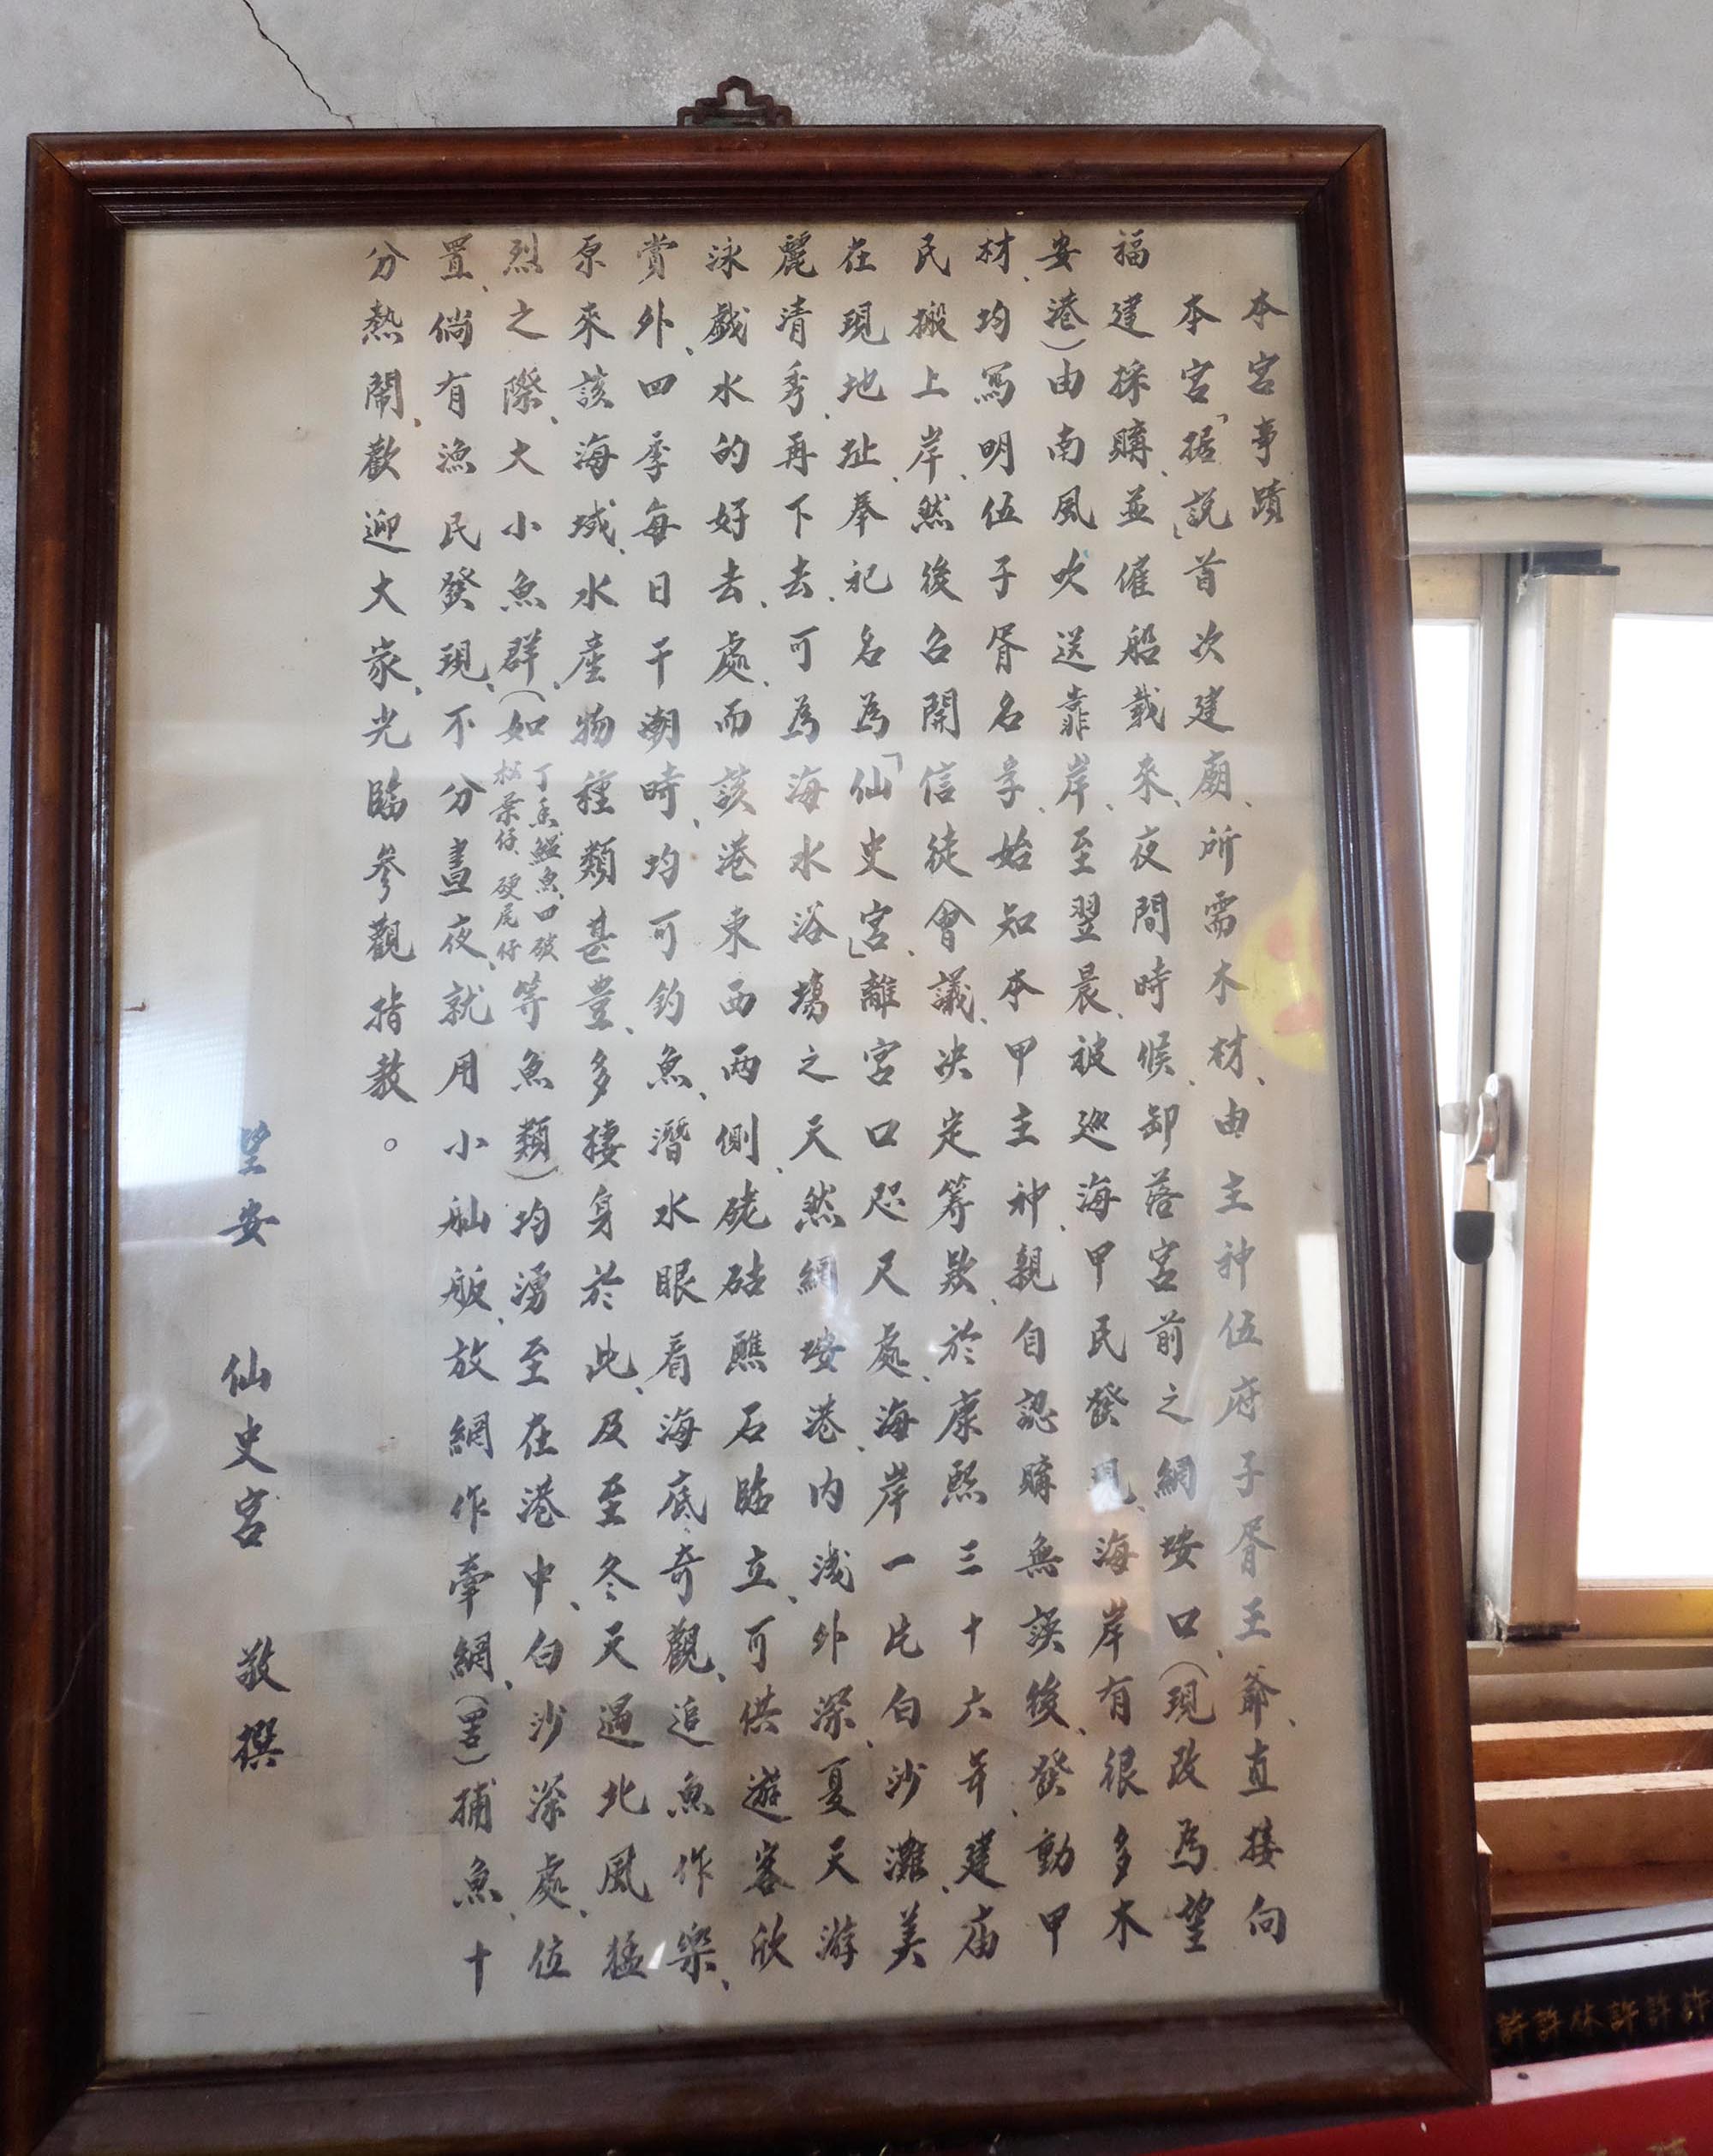 本宮事蹟
本宮「据說」首次建廟、所需木材、由主神伍府子胥王爺、直接向
福建採購、並催船載來、夜間時候、卸落宮前之網垵口、(現改為望
安港)由南風吹送靠岸、至翌晨、被巡海甲民發現、海岸有很多木
材、均寫明伍子胥名字、始知本甲主神、親自認購無誤後、發動甲
民搬上岸、然後召開信徒會議、決定籌款、於康熙三十六年、建庙
在現地址、奉祀名為「仙史宮」、離宮口咫尺處、海岸一片白沙灘、美
麗清秀、再下去、可為海水浴場之天然網垵港、內浅外深、夏天游
泳戲水的好去處、而該港東西兩側、硓𥑮醮石臨立、可供遊客欣
賞外、四季每日干潮時、均可釣魚、潛水眼看海底奇觀、追魚作樂、
原來該海域、水產物種類甚豊、多棲身於此、及至冬天遇北風猛
烈之際、大小魚群、(如丁香鰮魚、四破松葉仔、硬尾仔等魚類)均湧至在港中、白沙深處、位
置、倘有漁民發現、不分晝夜、就用小舢舨、放網作牽網、(罟)捕魚、十
分熱鬧、歡迎大家、光臨參觀指教。
望安 仙史宮 敬撰